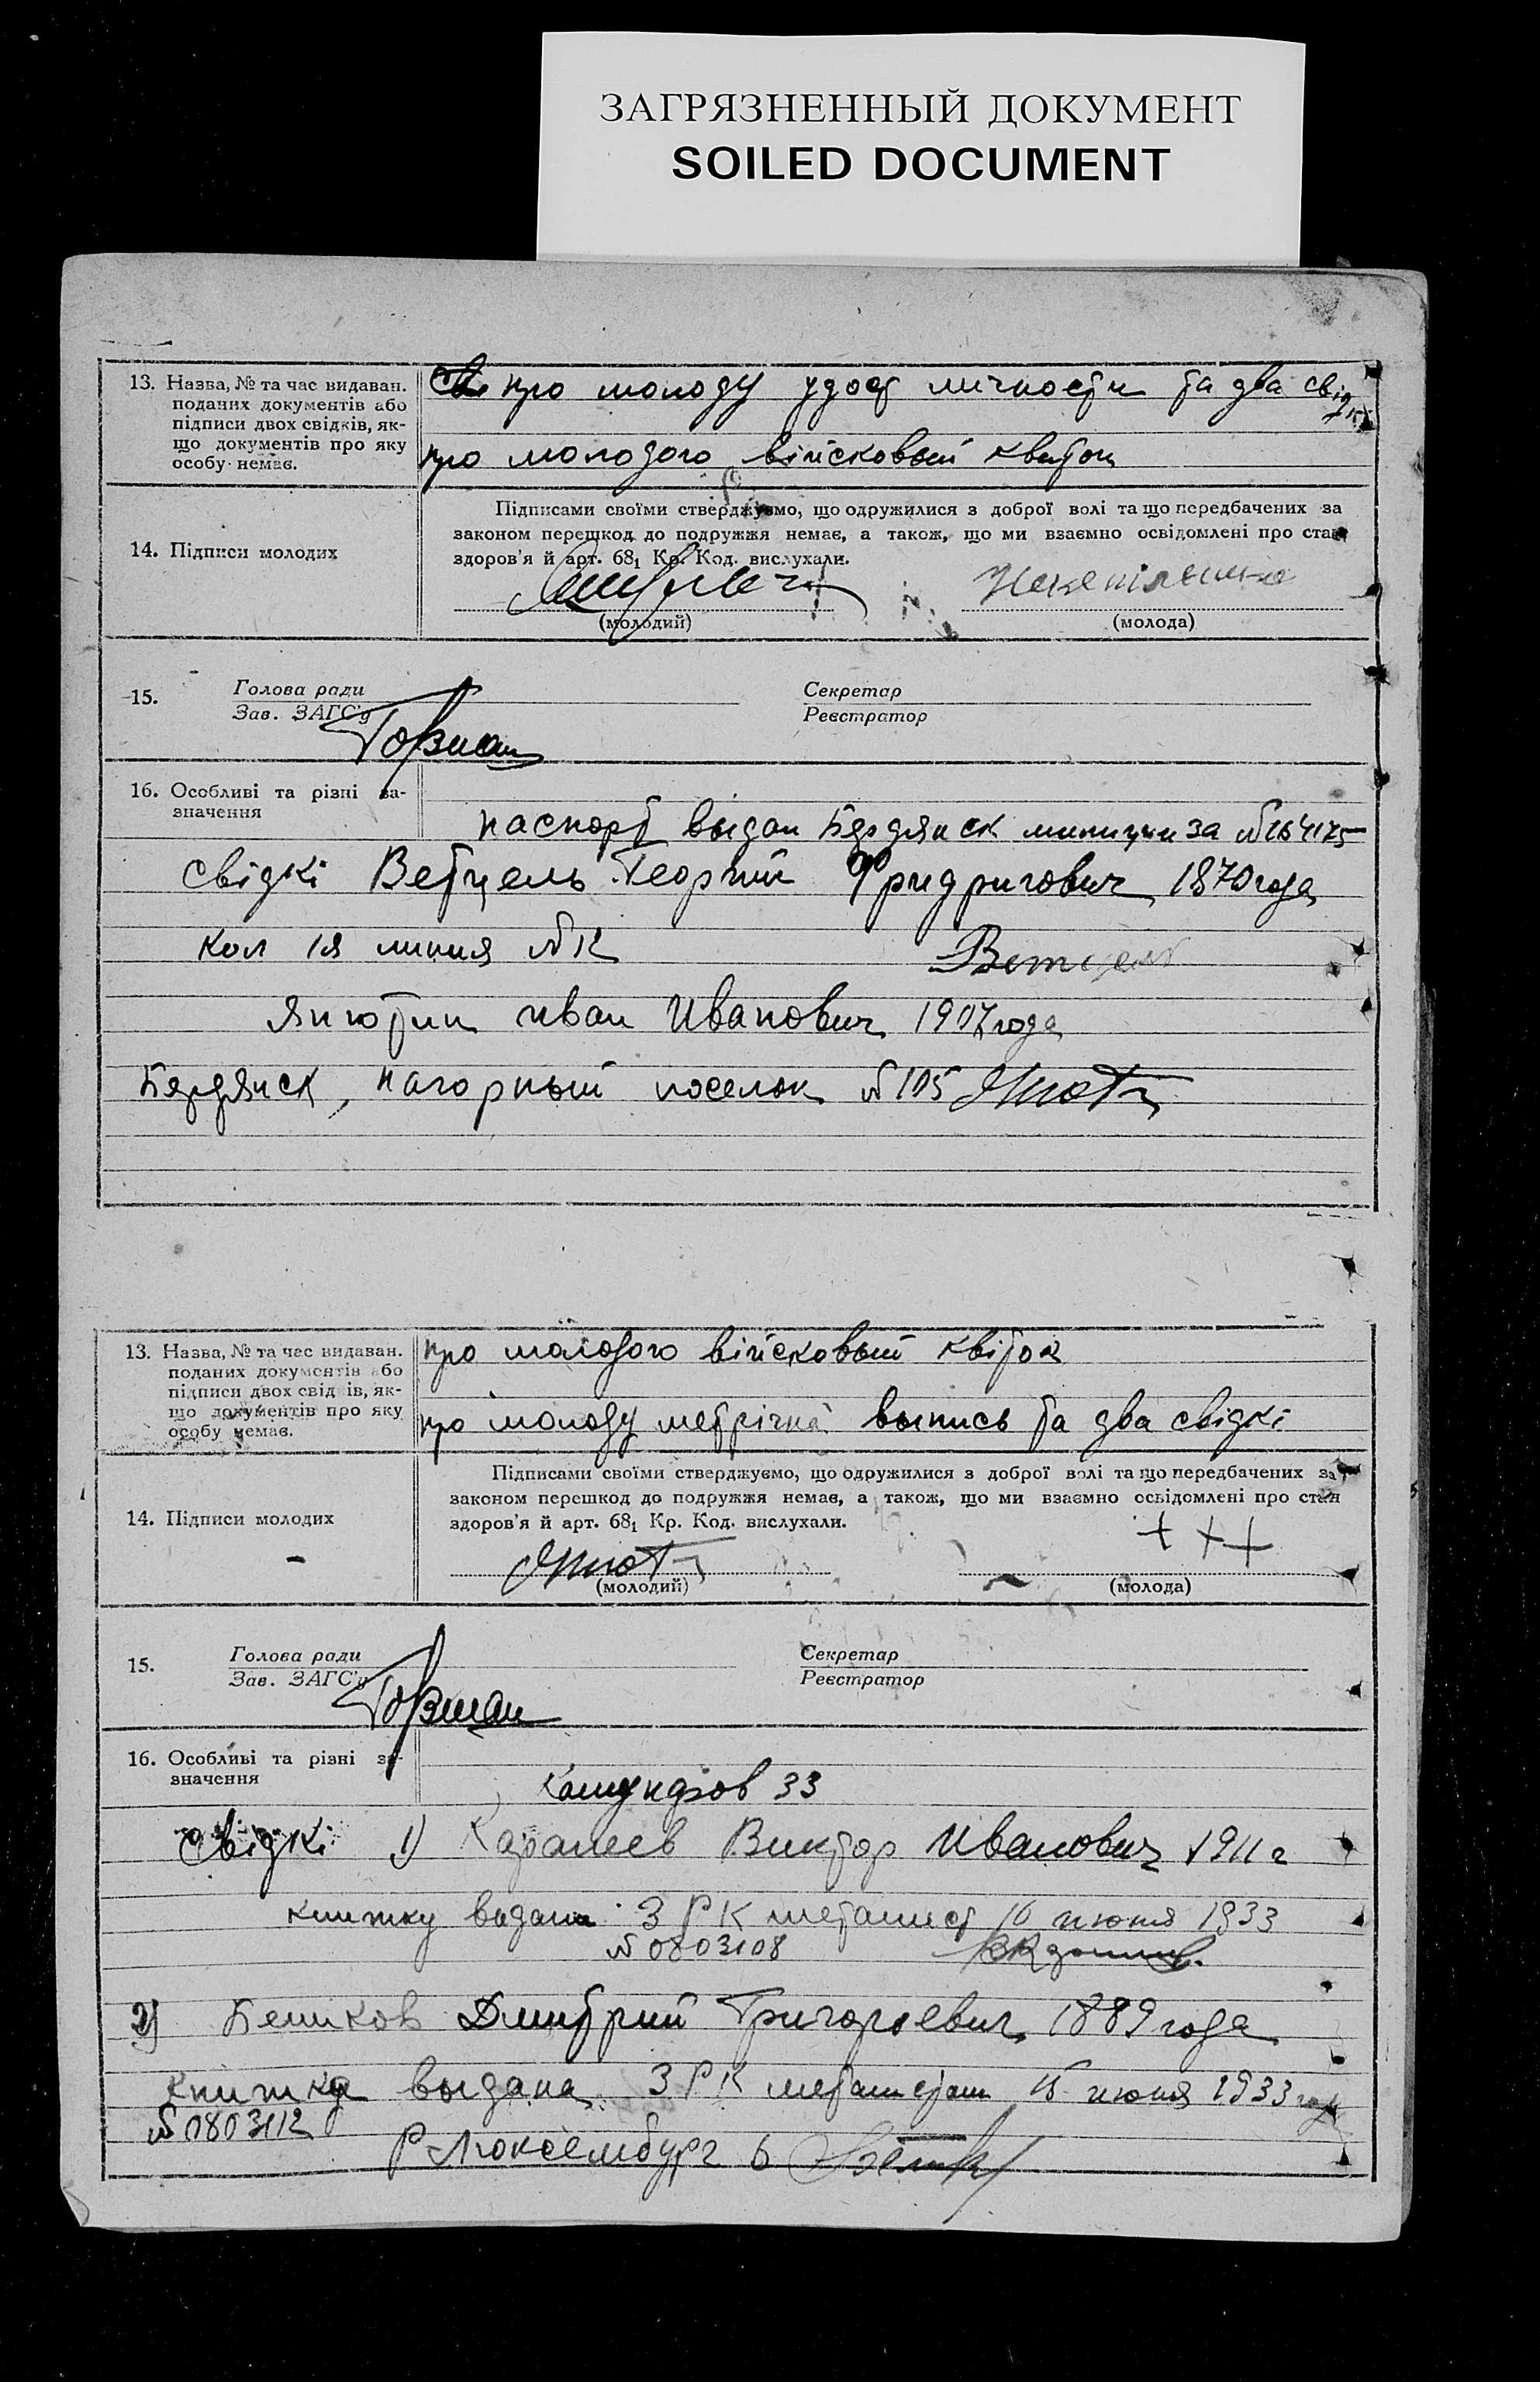 ЗАГРЯЗНЕННЫЙ ДОКУМЕНТ
SOILED DOCUMENT
13. Назва, № та час видаван.
поданих документів або
підписи двох свідків, як-
що документів про яку
особу немає.
про молоду удост личности та два свідкі
про молодого війсковый квиток
14. Підписи молодих
Підписами своїми стверджуємо, що одружилися з доброї волі та що передбачених за
законом перешкод до подружжя немає, а також, що ми взаємно освідомлені про стан
здоров'я й арт. 68₁ Кр. Код. вислухали.
(молодий)
(молода)
15.
Голова ради
Зав. ЗАГС'у
Секретар
Реєстратор
16. Особливі та різні за-
значення
паспорт выдан Бердянск милиции за №164175
свідкіВетцель Георгий Фридригович 1870 года
кол 1я линия № 12
Ветцель
Янютин иван Иванович 1907 года
Бердянск, нагорный поселок № 105
13. Назва, № та час видаван.
поданих документів або
підписи двох свідків, як-
що документів про яку
особу немає.
про молодого війсковый квіток
про молоду метрічна выпись та два свідкі
14. Підписи молодих
Підписами своїми стверджуємо, що одружилися з доброї волі та що передбачених за
законом перешкод до подружжя немає, а також, що ми взаємно освідомлені про стан
здоров'я й арт. 68₁ Кр. Код. вислухали.
+ + +
(молодий)
(молода)
15.
Голова ради
Зав. ЗАГС'у
Секретар
Реєстратор
16. Особливі та різні за-
значення
33
Свідкі 1) Виктор Иванович 1911 г
книжку видана ЗРК металист 16 июня 1933
№ 0803108
2) Дмитрий Григорьевич 1889 года
книжка выдана ЗРК 15 июня 1933 году
№ 0803112
Р Люксембург 6